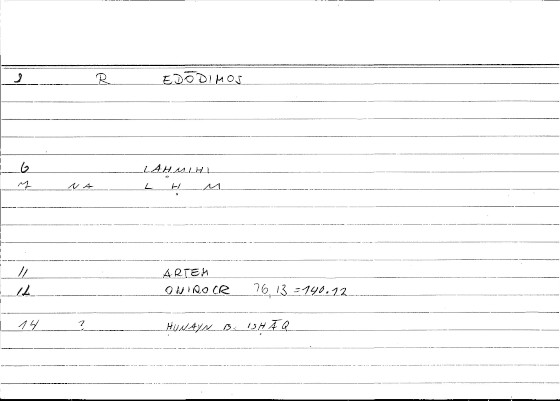 2 R EDŌDIMOS
6 LAḤMIHI
7 NA L Ḥ M
11 ARTEM
12 ONIROCR 76,13 = 140.12
14 ? HUNAYN B. ISḤĀQ